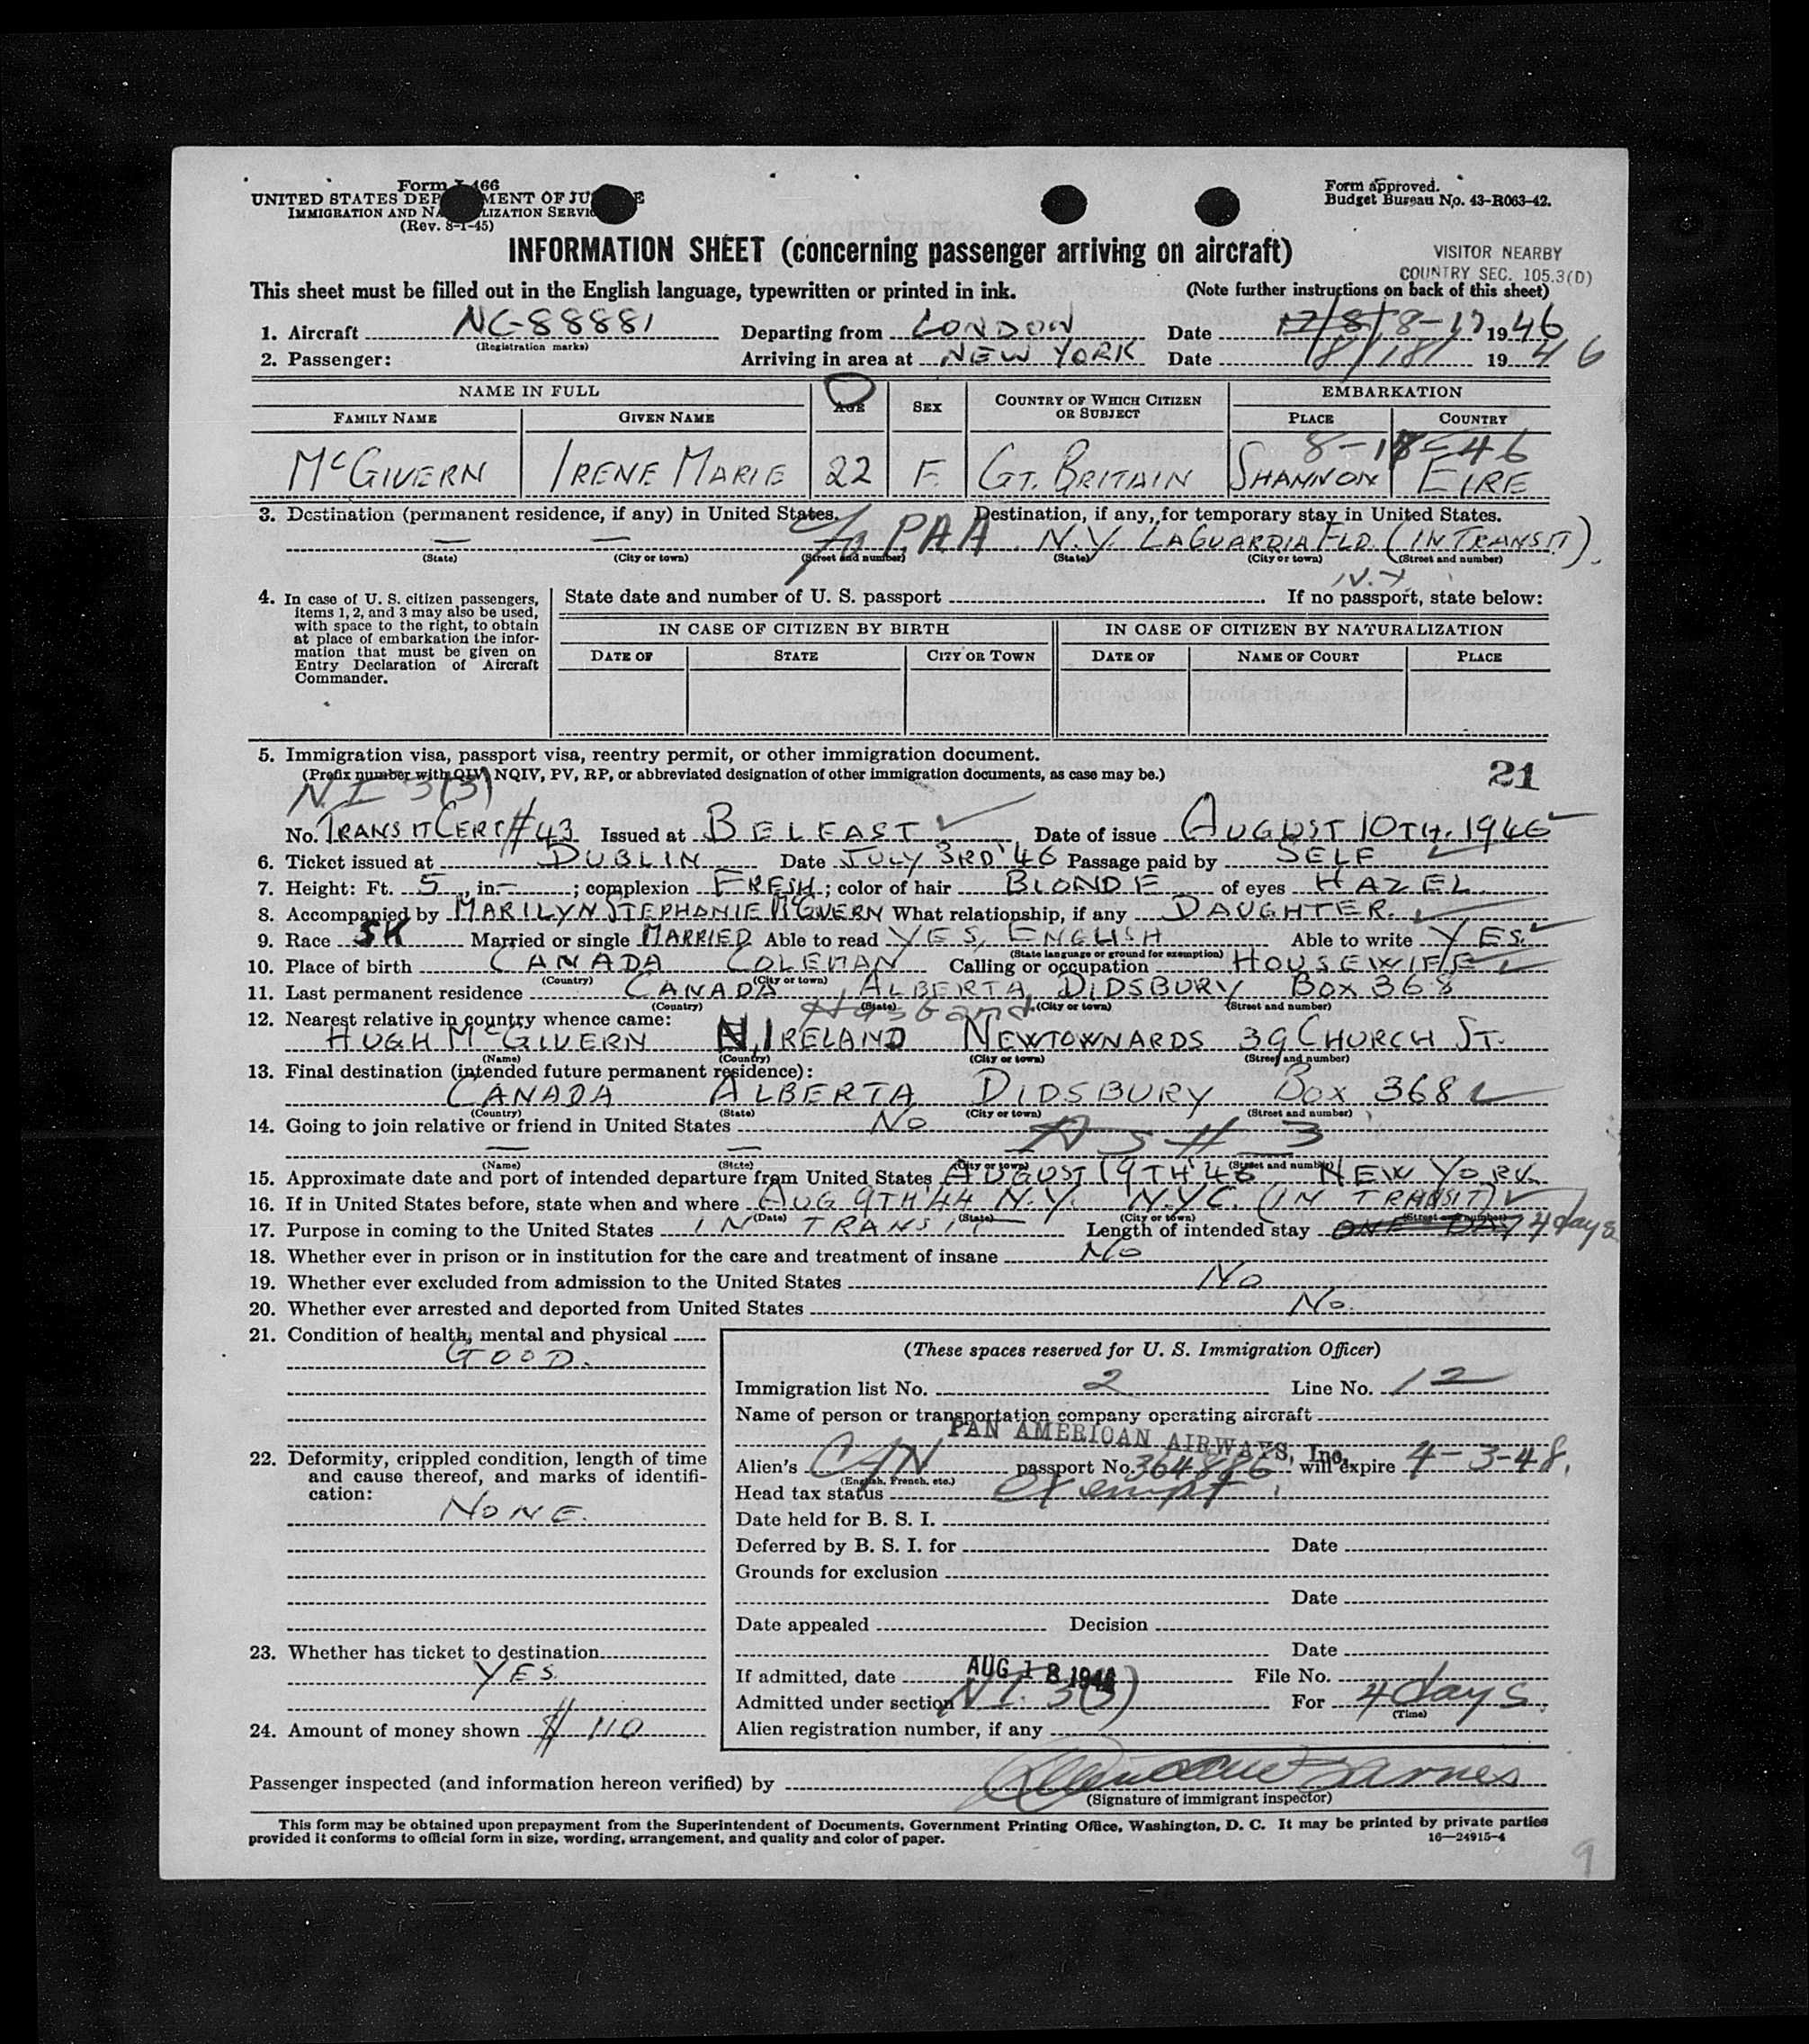 Form I-466
UNITED STATES DEPARTMENT OF JUSTICE
IMMIGRATION AND NATURALIZATION SERVICE
(Rev. 8-1-45)
Form approved.
Budget Bureau No. 43-R063-42.
INFORMATION SHEET (concerning passenger arriving on aircraft)
VISITOR NEARBY
COUNTRY SEC. 105.3(D)
This sheet must be filled out in the English language, typewritten or printed in ink. (Note further instructions on back of this sheet)
1. Aircraft NC-88881 Departing from LONDON Date 17/8/ 8-17 1946
(Registration marks)
2. Passenger: Arriving in area at NEW YORK Date 8/18/ 19 46
NAME IN FULL AGE SEX COUNTRY OF WHICH CITIZEN OR SUBJECT EMBARKATION
FAMILY NAME GIVEN NAME PLACE COUNTRY
8-18-46
McGIVERN IRENE MARIE 22 F. GT. BRITAIN SHANNON EIRE
3. Destination (permanent residence, if any) in United States. Destination, if any, for temporary stay in United States.
— — c/o PAA N.Y. LAGUARDIA FLD. (IN TRANSIT).
(State) (City or town) (Street and number) (State) (City or town) (Street and number)
N.Y
4. In case of U. S. citizen passengers, items 1, 2, and 3 may also be used, with space to the right, to obtain at place of embarkation the information that must be given on Entry Declaration of Aircraft Commander.
State date and number of U. S. passport . If no passport, state below:
IN CASE OF CITIZEN BY BIRTH IN CASE OF CITIZEN BY NATURALIZATION
DATE OF STATE CITY OR TOWN DATE OF NAME OF COURT PLACE
5. Immigration visa, passport visa, reentry permit, or other immigration document.
(Prefix number with QIV, NQIV, PV, RP, or abbreviated designation of other immigration documents, as case may be.) 21
N.I 3(3)
No. TRANSIT CERT # 43 Issued at BELFAST Date of issue AUGUST 10TH. 1946
6. Ticket issued at DUBLIN Date JULY 3RD '46 Passage paid by SELF
7. Height: Ft. 5, in. – ; complexion FRESH ; color of hair BLONDE of eyes HAZEL
8. Accompanied by MARILYN STEPHANIE McGIVERN What relationship, if any DAUGHTER.
9. Race SK Married or single MARRIED Able to read YES, ENGLISH Able to write YES.
(State language or ground for exemption)
10. Place of birth CANADA COLEMAN Calling or occupation HOUSEWIFE
(Country) (City or town)
11. Last permanent residence CANADA ALBERTA, DIDSBURY BOX 368
(Country) (State) (City or town) (Street and number)
12. Nearest relative in country whence came: Husband.
HUGH McGIVERN N. IRELAND NEWTOWNARDS 39 CHURCH ST.
(Name) (Country) (City or town) (Street and number)
13. Final destination (intended future permanent residence):
CANADA ALBERTA DIDSBURY BOX 368
(Country) (State) (City or town) (Street and number)
14. Going to join relative or friend in United States NO
— — As # 3
(Name) (State) (City or town) (Street and number)
15. Approximate date and port of intended departure from United States AUGUST 19TH '46 NEW YORK
16. If in United States before, state when and where AUG 9TH '44 N.Y. N.Y.C. (IN TRANSIT)
(Date) (State) (City or town) (Street and number)
17. Purpose in coming to the United States IN TRANSIT Length of intended stay ONE DAY 4 days
18. Whether ever in prison or in institution for the care and treatment of insane NO
19. Whether ever excluded from admission to the United States NO
20. Whether ever arrested and deported from United States NO.
21. Condition of health, mental and physical
GOOD.
22. Deformity, crippled condition, length of time and cause thereof, and marks of identification:
NONE.
23. Whether has ticket to destination
YES
24. Amount of money shown $ 110
(These spaces reserved for U. S. Immigration Officer)
Immigration list No. 2 Line No. 12
Name of person or transportation company operating aircraft
PAN AMERICAN AIRWAYS, Inc.
Alien's CAN passport No. 364886 will expire 4-3-48.
(English, French, etc.)
Head tax status exempt
Date held for B. S. I.
Deferred by B. S. I. for Date
Grounds for exclusion
Date
Date appealed Decision
Date
If admitted, date AUG 18 1946 File No.
Admitted under section N I. 3(3) For 4 days
(Time)
Alien registration number, if any
Passenger inspected (and information hereon verified) by Barnes
(Signature of immigrant inspector)
This form may be obtained upon prepayment from the Superintendent of Documents, Government Printing Office, Washington, D. C. It may be printed by private parties
provided it conforms to official form in size, wording, arrangement, and quality and color of paper. 16—24915-4
9